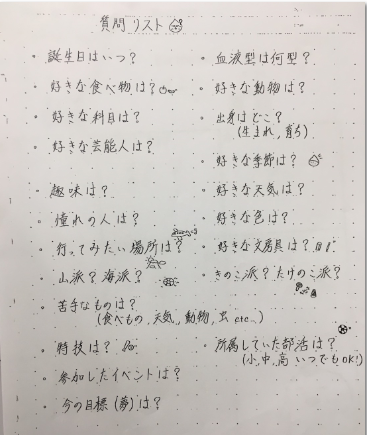 質問リスト
・誕生日はいつ？
・好きな食べ物は？
・好きな科目は？
・好きな芸能人は？
・趣味は？
・憧れの人は？
・行ってみたい場所は？
・山派？海派？
・苦手なものは？
(食べもの、天気、動物、虫 etc...)
・特技は？
・参加したイベントは？
・今の目標(夢)は？
・血液型は何型？
・好きな動物は？
・出身はどこ？
(生まれ、育ち)
・好きな季節は？
・好きな天気は？
・好きな色は？
・好きな文房具は？
・きのこ派？たけのこ派？
・所属していた部活は？
(小、中、高 いつでもOK!)